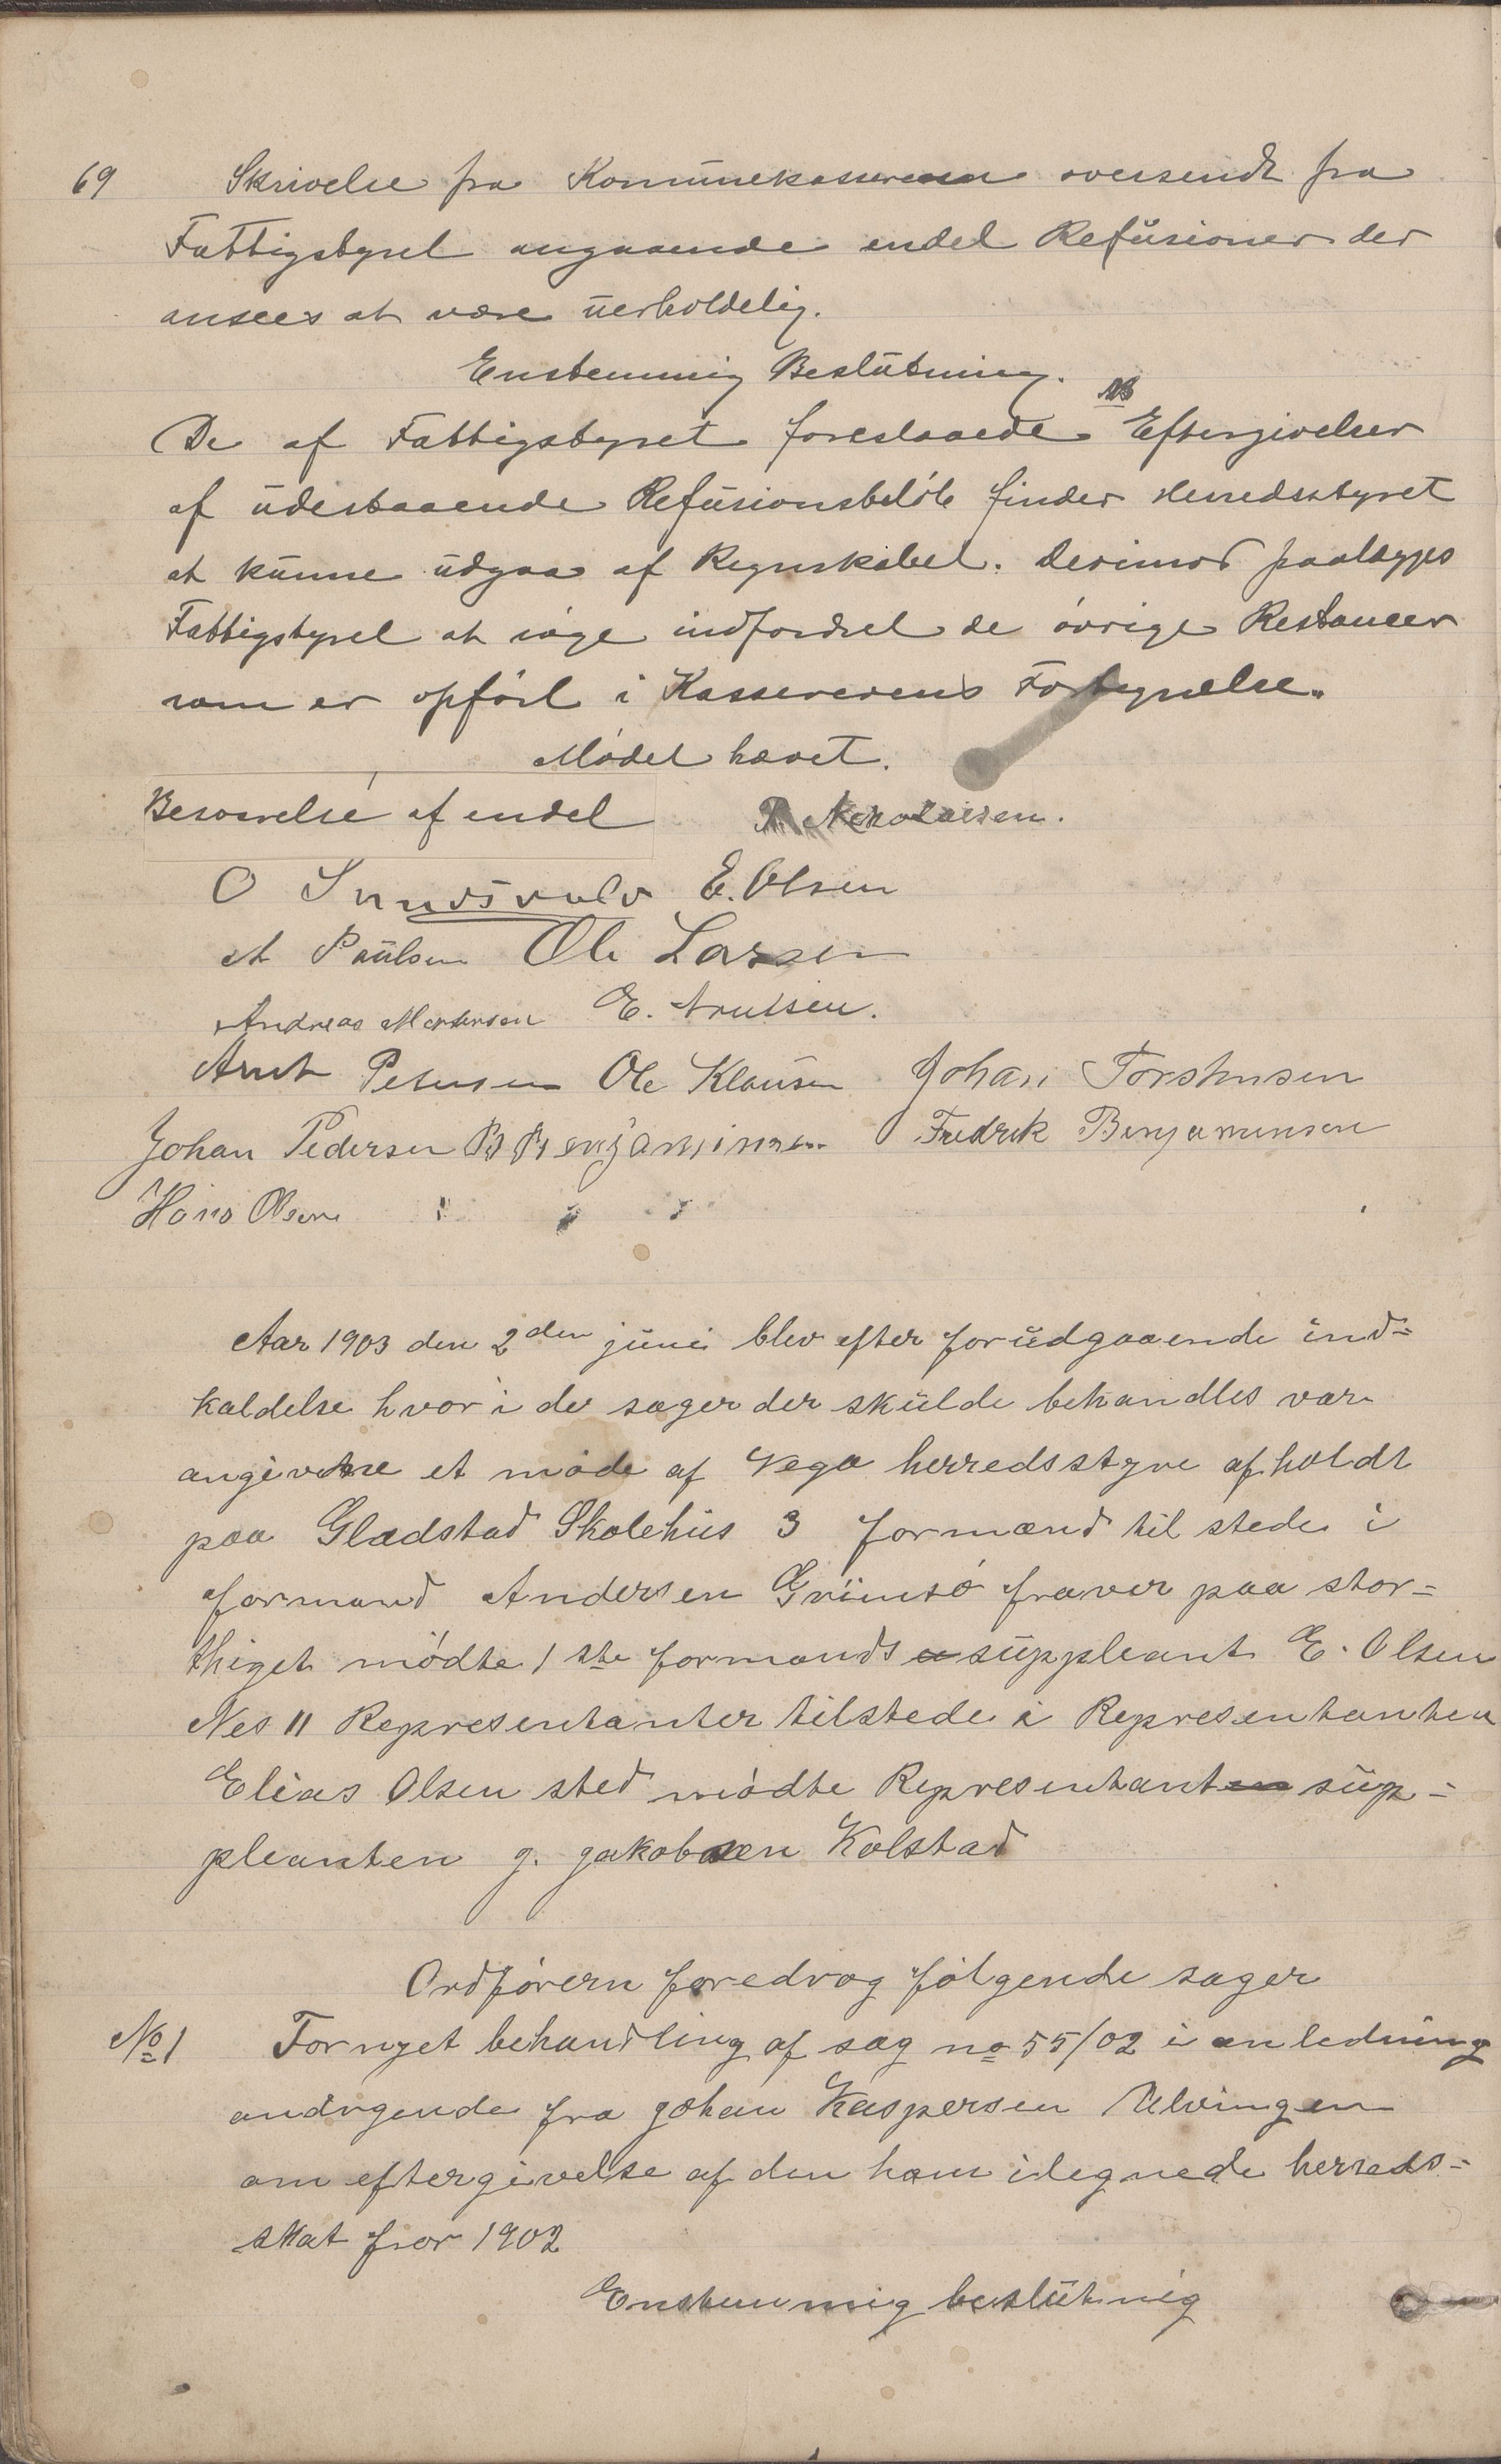 69 Skrivelse fra Kommunekassereren oversendt fra
Fattigstyret angaaende endel Refusioner der
ansees at være uerholdelig.
Enstemmig Beslutning.
De af Fattigstyret foreslaaede Eftergivelser
af udestaaende Refusionsbeløb finder Herredsstyret
at kunne udgaa af Regnskabet. Derimod paalægges
Fattigstyret at søge indfordret de øvrige Restancer
som er opført i Kassererens Fortegnelse.
Mødet hævet.
Besvarelse af endel P. Nikolaisen.
O E. Olsen
A Paulsen Ole Larsen
Andreas Mortensen E. Knutsen.
Arnt Petersen Ole Klausen Johan Torstensen
Johan Pedersen B Benjaminsen Fredrik Benjaminsen
Hans Olsen
Aar 1903 den 2den juni blev efter forudgaaende ind=
kaldelse hvor i de sager der skulde behandles var
angivne et møde af Vega herredsstyre afholdt
paa Gladstad Skolehus 3 formænd til stede i
formand Andersen Grimsø fraver paa stor=
thiget mødte 1ste formands suppleant E. Olsen
Nes 11 Representanter tilstede i Representanten
Elias Olsen sted mødte Representant sup=
pleanten J. Jakobsen Kolstad
Ordførern foredrog følgende sager
No 1 Fornyet behandling af sag no 55/02 i anledning
andrgende fra Johan Kaspersen Ulvingen
om eftergivelse af den ham ilegnede herreds=
skat for 1902
Enstemmig beslutnig